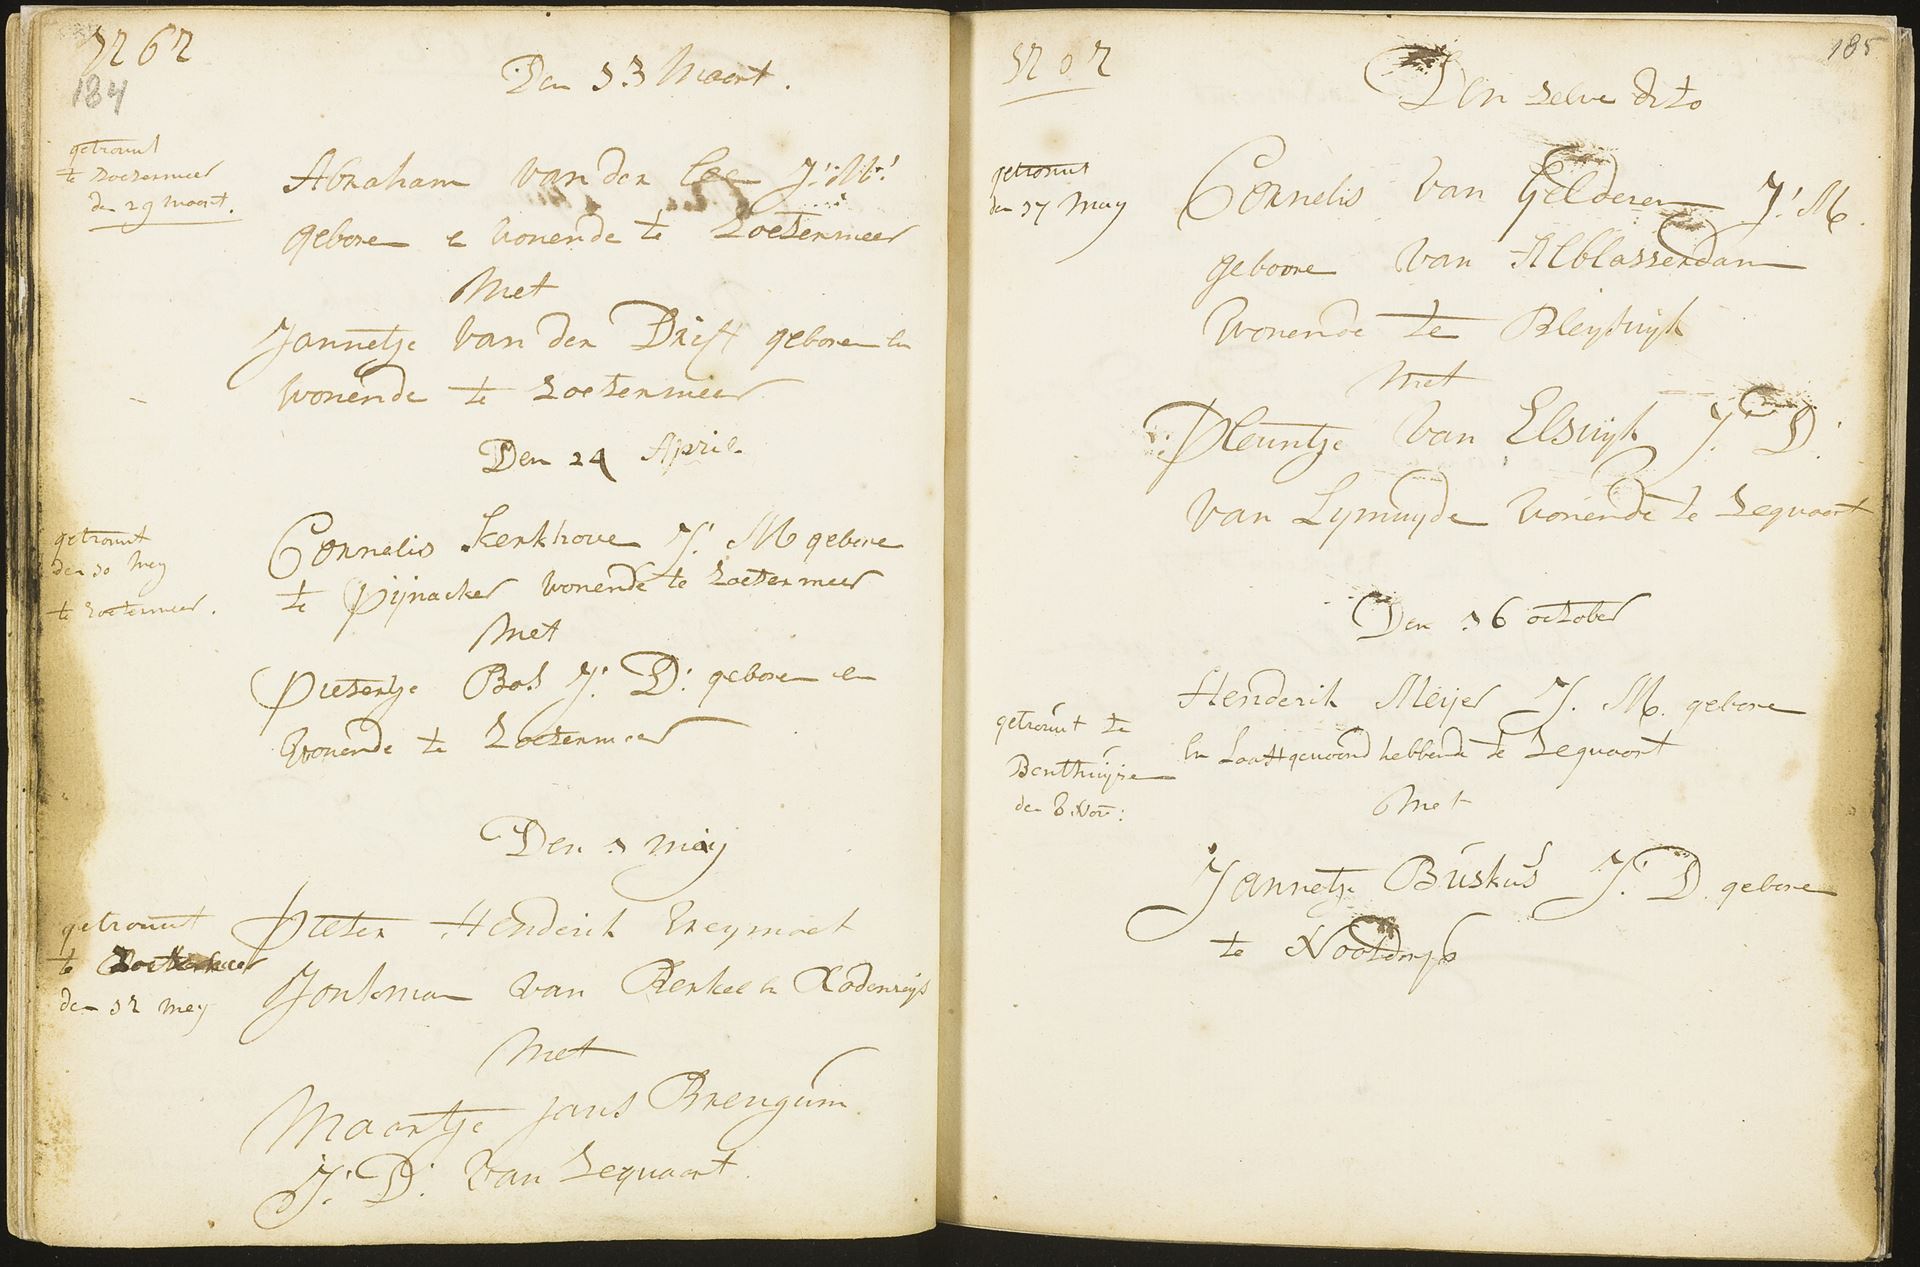 1762
184
Den 13 Maart.
getrouwt
te Zoetermeer
de 29 maart.
Abraham van der Lee J: M:
gebore e wonende te Zoetermeer
Met
Jannetje van der Drift geboren en
wonende te Zoetermeer
Den 24 April
getrouwt
den 10 Mey
te Zoetermeer.
Cornelis Kerkhove J: M gebore
te Pijnacker wonende te Zoetermeer
Met
Pietertje Bos J: D: geboren en
wonende te Zoetermeer
Den 1 mey
getrouwt
te Zoetermeer
den 12 mey
Pieter Henderik
Jonkman van Berkel en Rodenrijs
Met
Maartje Jans
J: D: van Zegwaart.
1762
185
Den zelve dito
getrouwt
den 17 May
Cornelis van Gelderen J: M.
geboore van Alblasserdam
wonende te Bleyswyk
Met
Pleuntje van Elswyk J: D:
van Lymuyde wonende te Zegwaart
Den 16 october
getrouwt te
Benthuyse
den 8 Nov:
Henderik Meijer J. M. gebore
en laatst gewoond hebbende te Zegwaart
Met
Jannetje Buskus J: D gebore
te Nootdorp